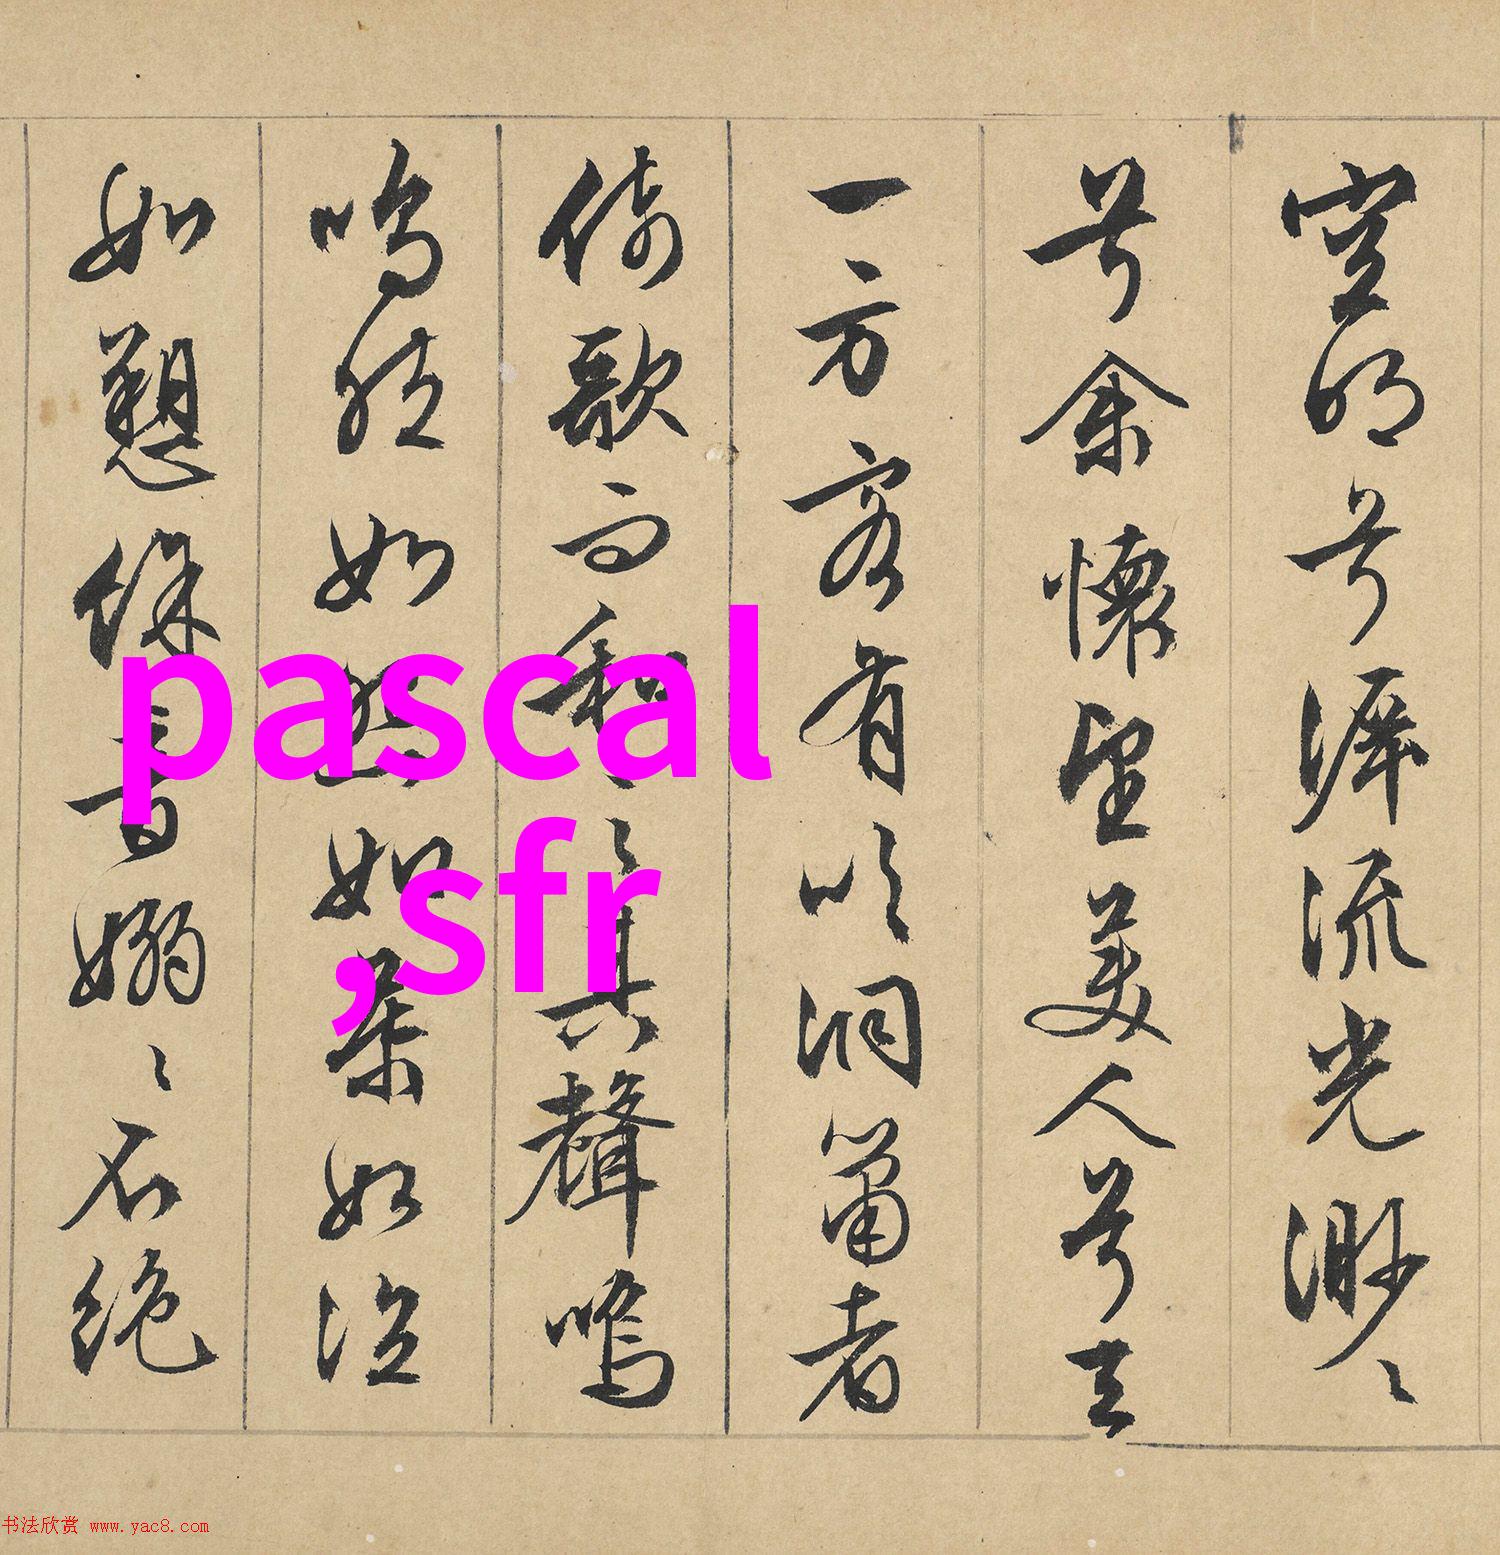 空明兮泝流光渺〻
兮余懷望美人兮天
一方客有吹洞簫者
倚歌而和之其聲嗚
嗚然如怨如慕如泣
如愬餘音嫋〻不絕
pascal
,sfr
书法欣赏 www.yac8.com